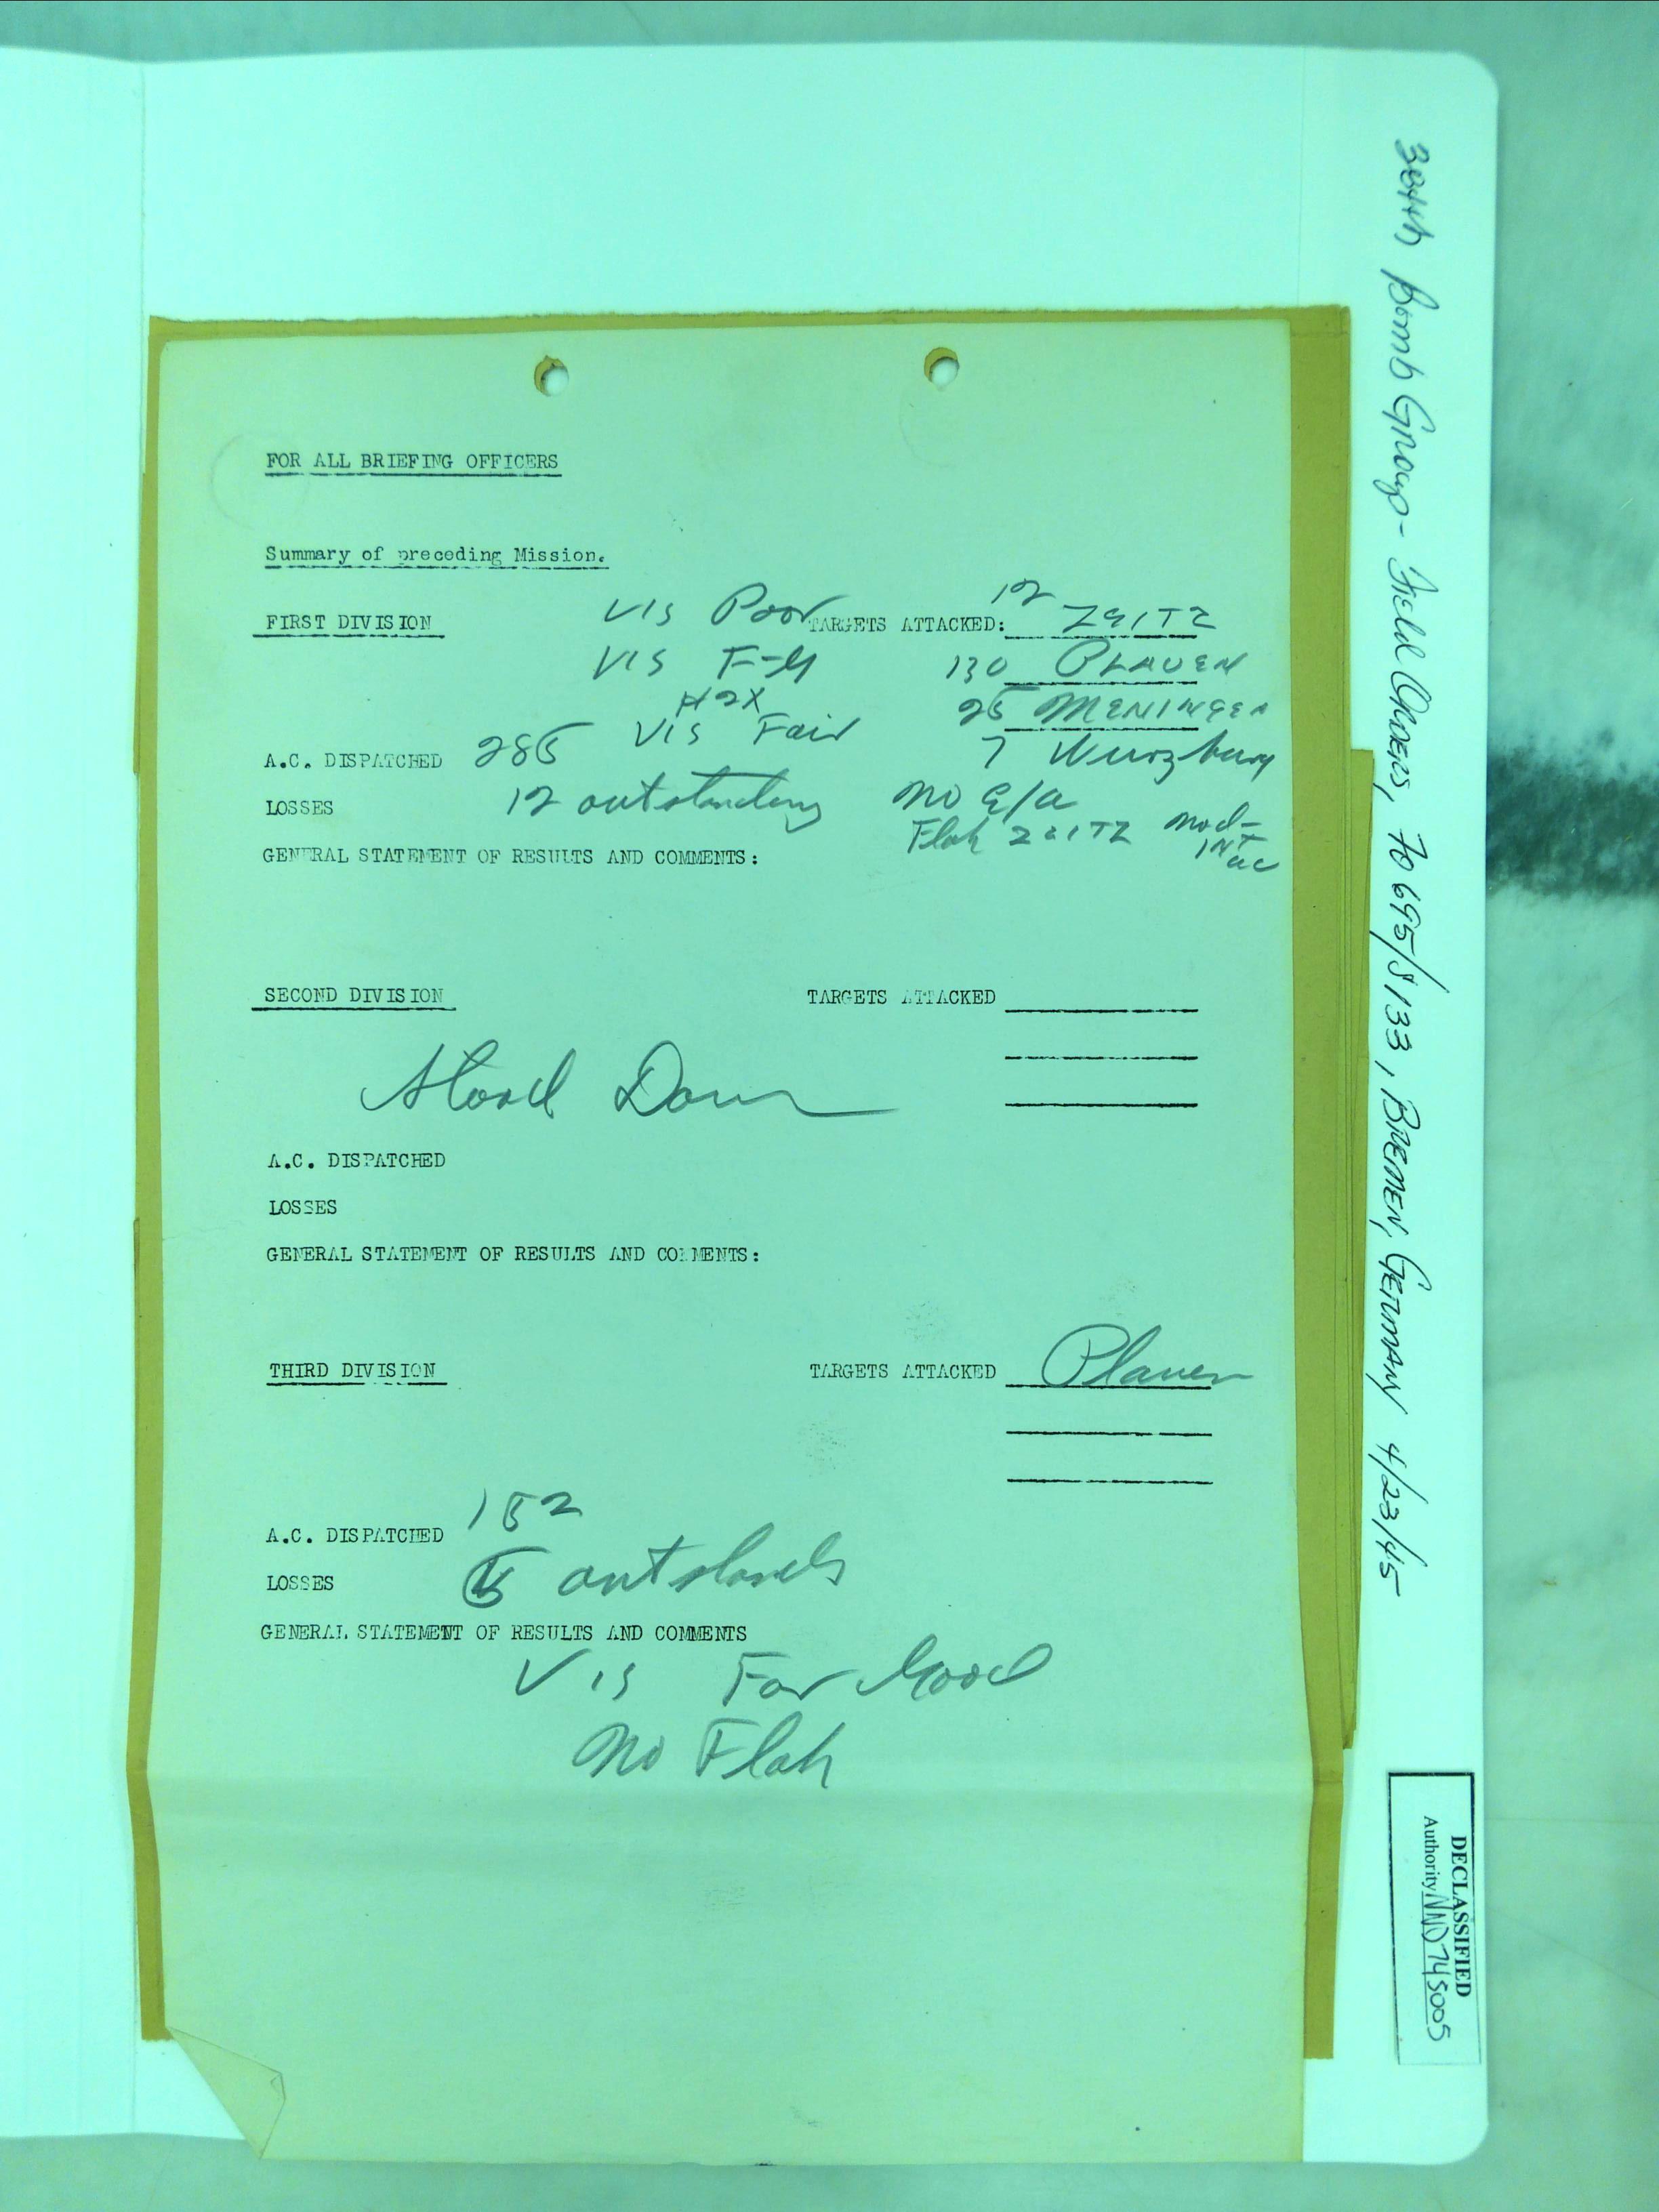 FOR ALL BRIEFING OFFICERS
Summary of preceding Mission.
FIRST DIVISION VIS Poor TARGETS ATTACKED: 12 ZEITZ
VIS F-G 130 PLAUEN
H2X 25 MENINGEN
VIS Fair 7 Wurzburg
A.C. DISPATCHED 285
LOSSES 12 outstanding no E/A
Flak ZEITZ Mod-INT acc
GENERAL STATEMENT OF RESULTS AND COMMENTS:
SECOND DIVISION TARGETS ATTACKED
Stood Down
A.C. DISPATCHED
LOSSES
GENERAL STATEMENT OF RESULTS AND COMMENTS:
THIRD DIVISION TARGETS ATTACKED Plauen
A.C. DISPATCHED 152
LOSSES 5
GENERAL STATEMENT OF RESULTS AND COMMENTS
VIS Fair Good
No Flak
384th Bomb Group - Field Orders, FO 695/S133, BREMEN, GERMANY 4/23/45
DECLASSIFIED
Authority NND 745005